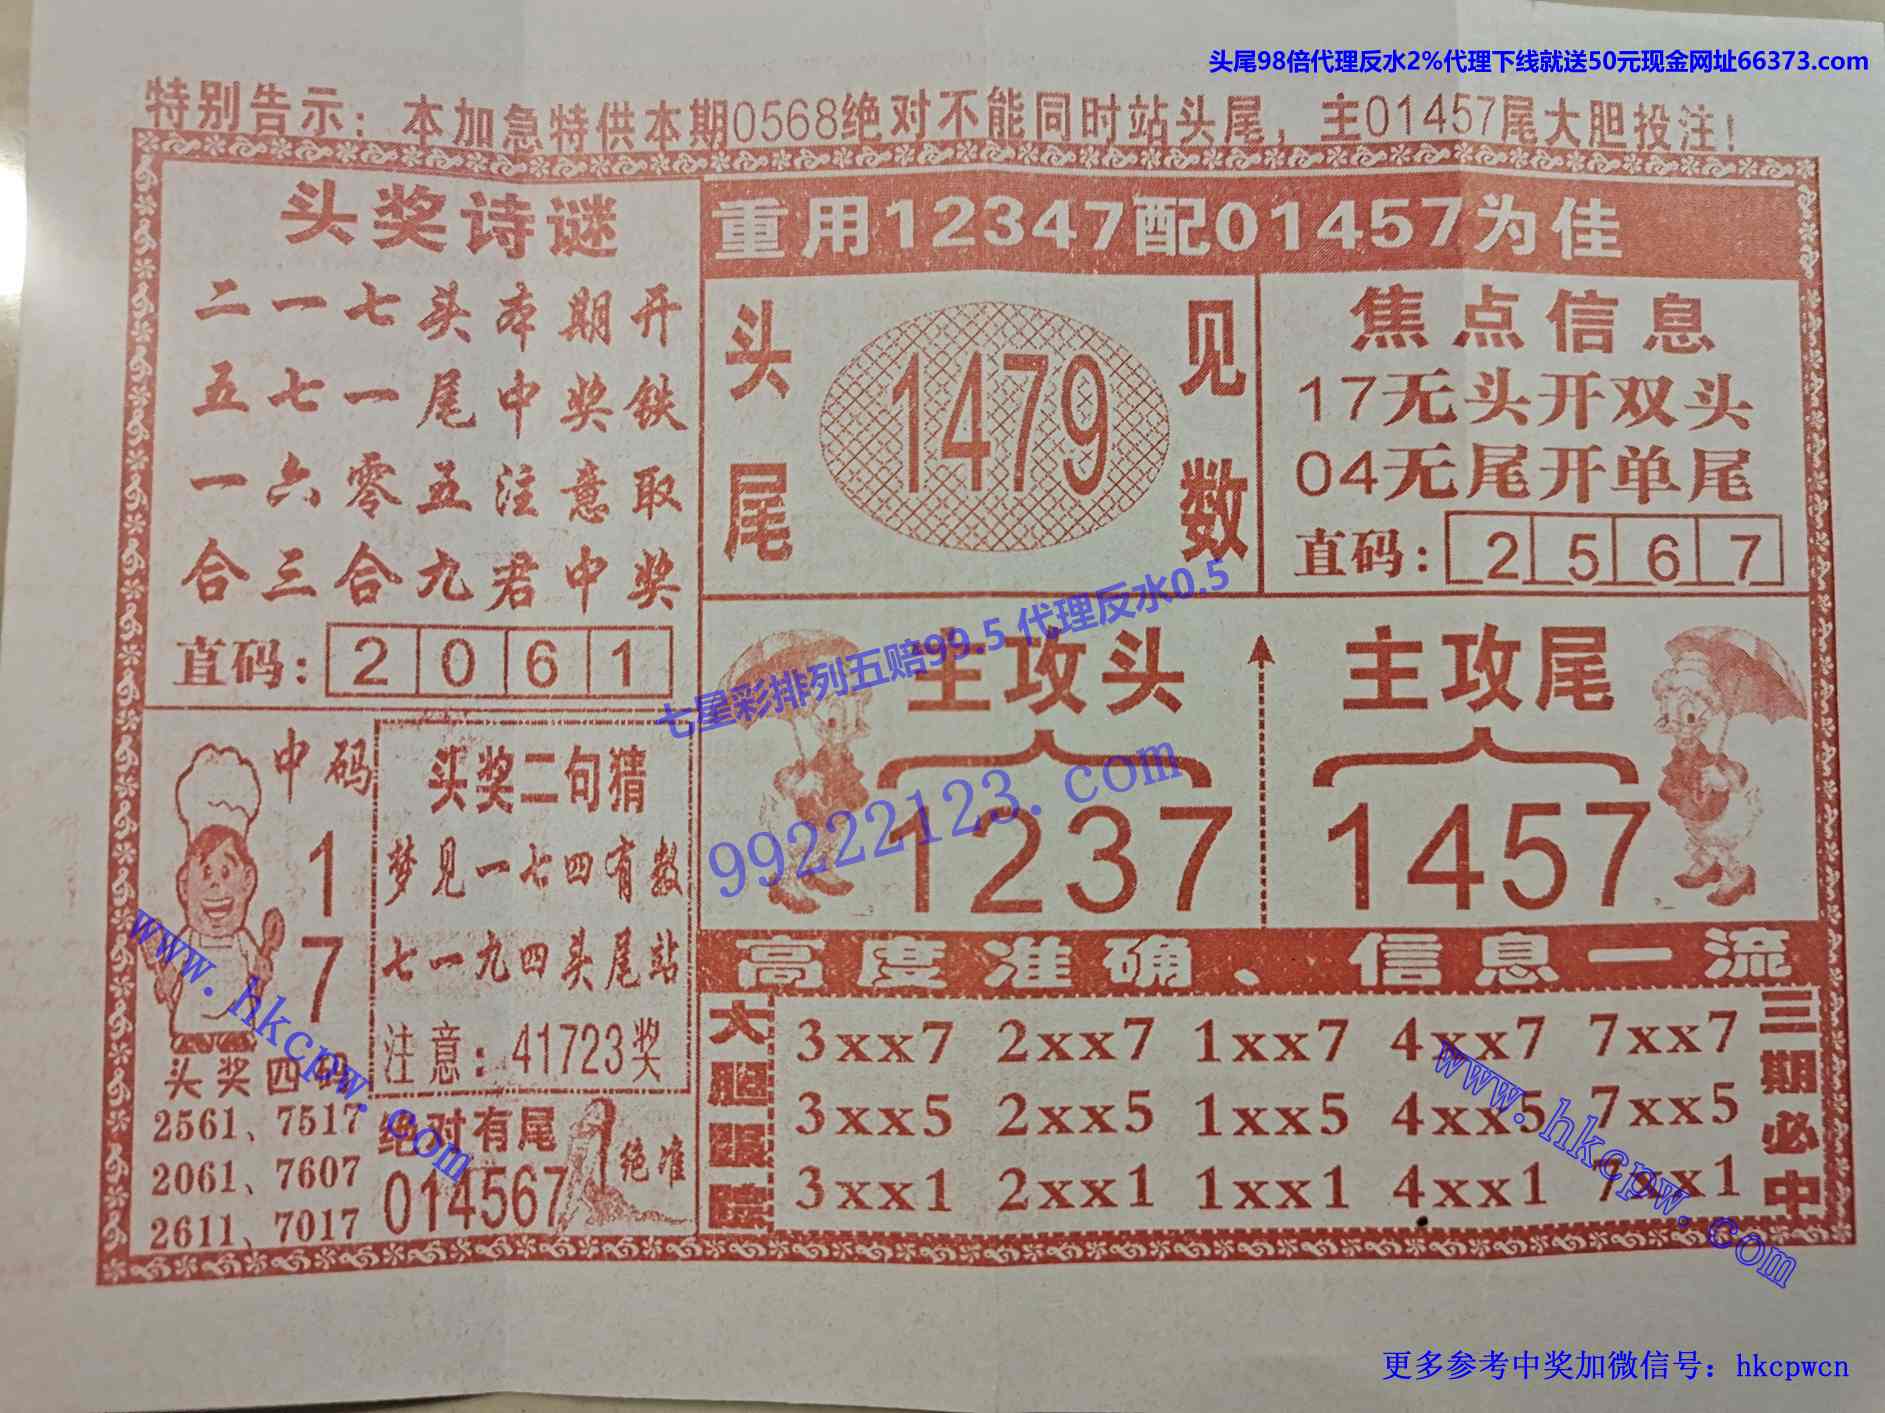 头尾98倍代理反水2%代理下线就送50元现金网址66373.com
特别告示：本加急特供本期0568绝对不能同时站头尾，主01457尾大胆投注！
头奖诗谜
二一七头本期开
五七一尾中奖铁
一六零五注意取
合三合九君中奖
直码：2061
重用12347配01457为佳
头尾
1479
见数
焦点信息
17无头开双头
04无尾开单尾
直码：2567
七星彩排列五赔99.5 代理反水0.5
99222123.com
主攻头
1237
主攻尾
1457
中码
1
7
头奖四码
2561、7517
2061、7607
2611、7017
头奖二句猜
梦见一七四有数
七一九四头尾站
注意：41723奖
绝对有尾
014567
绝准
www.hkcpw.com
高度准确、信息一流
大胆跟踪
3xx7 2xx7 1xx7 4xx7 7xx7
3xx5 2xx5 1xx5 4xx5 7xx5
3xx1 2xx1 1xx1 4xx1 7xx1
三期必中
www.hkcpw.com
更多参考中奖加微信号：hkcpwcn